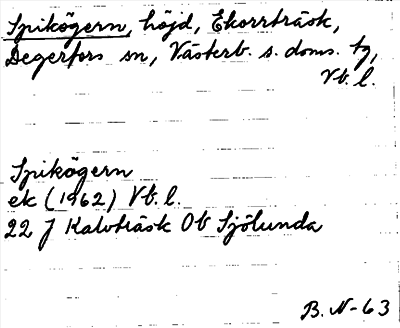 Spikögern, höjd, Ekorrträsk,
Degerfors sn, Västerb. s. doms. tg,
Vb. l.
Spikögern
ek (1962) Vb. l.
22 J Kalvträsk Ob Sjölunda
B. N-63